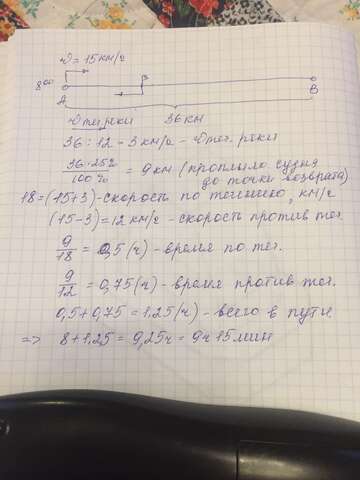 v = 15 км/ч
8⁰⁰
A B
v теч. реки 36 км
36 : 12 = 3 км/ч - v теч. реки
36·25% / 100% = 9 км (проплыло судно до точки возврата)
18 = (15+3) - скорость по течению, км/ч
(15-3) = 12 км/ч - скорость против теч.
9/18 = 0,5 (ч) - время по теч.
9/12 = 0,75 (ч) - время против теч.
0,5 + 0,75 = 1,25 (ч) - всего в пути.
=> 8 + 1,25 = 9,25ч = 9ч 15мин